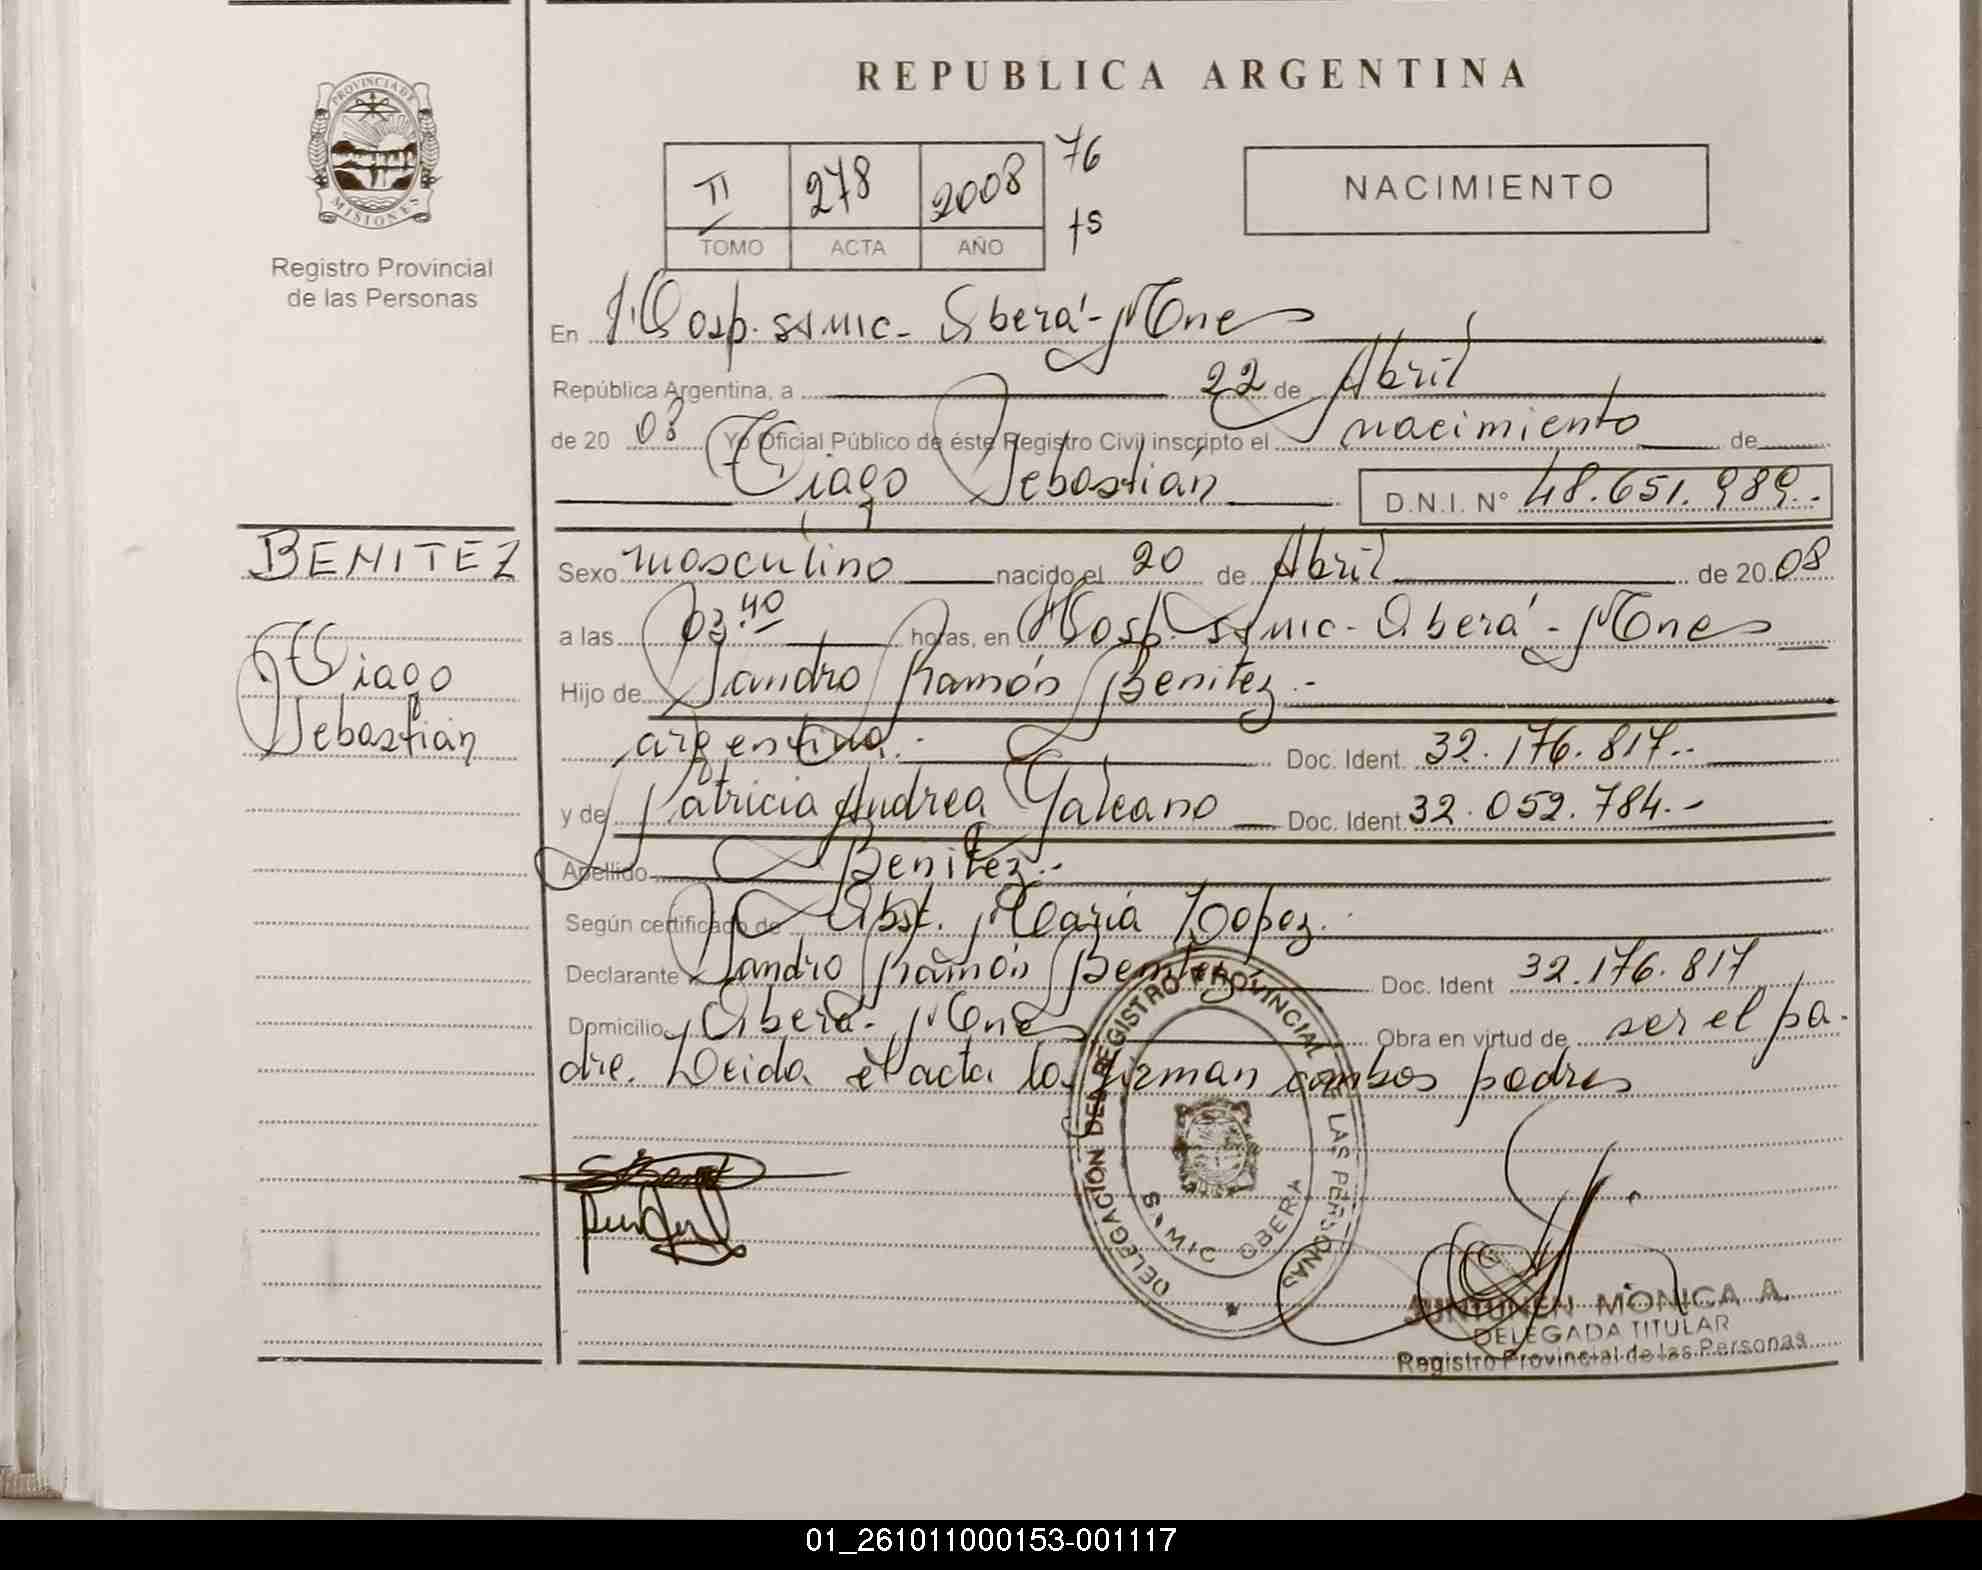 REPUBLICA ARGENTINA
PROVINCIA DE
MISIONES
Registro Provincial
de las Personas
II 278 2008 76
TOMO ACTA AÑO
NACIMIENTO
En Hosp. samic - Oberá - Mnes
República Argentina, a 22 de Abril
de 20 08 Yo Oficial Público de éste Registro Civil inscripto el nacimiento de
Tiago Sebastián D.N.I. N° 48.651.989..
BENITEZ
Tiago
Sebastián
Sexo masculino nacido el 20 de Abril de 20 08
a las 03.40 horas, en Hosp. samic - Oberá - Mnes
Hijo de Sandro Ramón Benitez.-
argentina.- Doc. Ident. 32.176.817.-
y de Patricia Andrea Galeano Doc. Ident. 32.052.784.-
Apellido Benitez.-
Según certificado de Obst. María Lopez.
Declarante Sandro Ramón Benitez Doc. Ident 32.176.817
Domicilio Oberá - Mnes Obra en virtud de ser el pa-
dre. Leida el acta la firman ambos padres
DELEGACIÓN DEL REGISTRO PROVINCIAL DE LAS PERSONAS
SAMIC OBERA
JUNTUNEN MONICA A.
DELEGADA TITULAR
Registro Provincial de las Personas
01_261011000153-001117